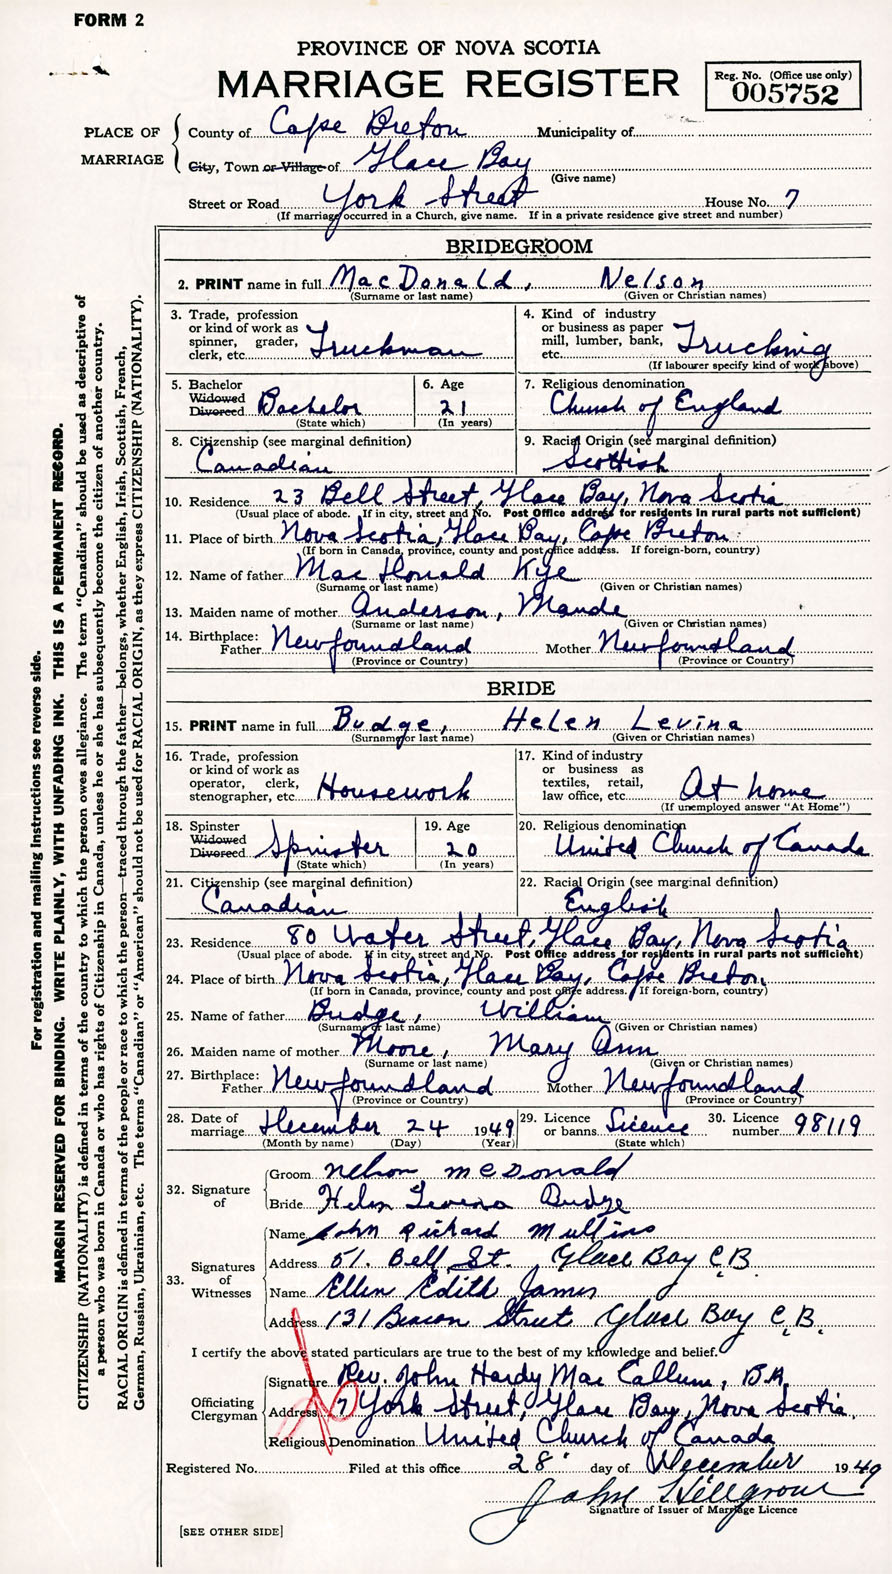 FORM 2
PROVINCE OF NOVA SCOTIA
MARRIAGE REGISTER
Reg. No. (Office use only)
005752
PLACE OF MARRIAGE
County of Cape Breton Municipality of
City, Town or Village of Glace Bay
(Give name)
Street or Road York Street House No. 7
(If marriage occurred in a Church, give name. If in a private residence give street and number)
BRIDEGROOM
2. PRINT name in full MacDonald, Nelson
(Surname or last name) (Given or Christian names)
3. Trade, profession or kind of work as spinner, grader, clerk, etc. Truckman
4. Kind of industry or business as paper mill, lumber, bank, etc. Trucking
(If labourer specify kind of work above)
5. Bachelor Widowed Divorced Bachelor
(State which)
6. Age 21
(In years)
7. Religious denomination
Church of England
8. Citizenship (see marginal definition)
Canadian
9. Racial Origin (see marginal definition)
Scottish
10. Residence 23 Bell Street, Glace Bay, Nova Scotia
(Usual place of abode. If in city, street and No. Post Office address for residents in rural parts not sufficient)
11. Place of birth Nova Scotia, Glace Bay, Cape Breton
(If born in Canada, province, county and post office address. If foreign-born, country)
12. Name of father Mac Donald Kye
(Surname or last name) (Given or Christian names)
13. Maiden name of mother Anderson, Maude
(Surname or last name) (Given or Christian names)
14. Birthplace:
Father Newfoundland Mother Newfoundland
(Province or Country) (Province or Country)
BRIDE
15. PRINT name in full Budge, Helen Levina
(Surname or last name) (Given or Christian names)
16. Trade, profession or kind of work as operator, clerk, stenographer, etc. Housework
17. Kind of industry or business as textiles, retail, law office, etc. At home
(If unemployed answer "At Home")
18. Spinster Widowed Divorced Spinster
(State which)
19. Age 20
(In years)
20. Religious denomination
United Church of Canada
21. Citizenship (see marginal definition)
Canadian
22. Racial Origin (see marginal definition)
English
23. Residence 80 Water Street, Glace Bay, Nova Scotia
(Usual place of abode. If in city, street and No. Post Office address for residents in rural parts not sufficient)
24. Place of birth Nova Scotia, Glace Bay, Cape Breton,
(If born in Canada, province, county and post office address. If foreign-born, country)
25. Name of father Budge, William
(Surname or last name) (Given or Christian names)
26. Maiden name of mother Moore, Mary Ann
(Surname or last name) (Given or Christian names)
27. Birthplace:
Father Newfoundland Mother Newfoundland
(Province or Country) (Province or Country)
28. Date of marriage December 24 1949
(Month by name) (Day) (Year)
29. Licence or banns Licence
(State which)
30. Licence number 98119
32. Signature of
Groom Nelson McDonald
Bride Helen Levena Budge
33. Signatures of Witnesses
Name John Richard Mullins
Address 51. Bell St. Glace Bay C.B.
Name Ellen Edith James
Address 131 Beacon Street Glace Bay C.B.
I certify the above stated particulars are true to the best of my knowledge and belief.
Officiating Clergyman
Signature Rev. John Hardy Mac Callum, B.A.
Address 7 York Street, Glace Bay, Nova Scotia.
Religious Denomination United Church of Canada
Registered No. Filed at this office 28 day of December 1949
John Hillgrove
Signature of Issuer of Marriage Licence
[SEE OTHER SIDE]
For registration and mailing instructions see reverse side.
MARGIN RESERVED FOR BINDING. WRITE PLAINLY, WITH UNFADING INK. THIS IS A PERMANENT RECORD.
CITIZENSHIP (NATIONALITY) is defined in terms of the country to which the person owes allegiance. The term "Canadian" should be used as descriptive of
a person who was born in Canada or who has rights of Citizenship in Canada, unless he or she has subsequently become the citizen of another country.
RACIAL ORIGIN is defined in terms of the people or race to which the person—traced through the father—belongs, whether English, Irish, Scottish, French,
German, Russian, Ukrainian, etc. The terms "Canadian" or "American" should not be used for RACIAL ORIGIN, as they express CITIZENSHIP (NATIONALITY).